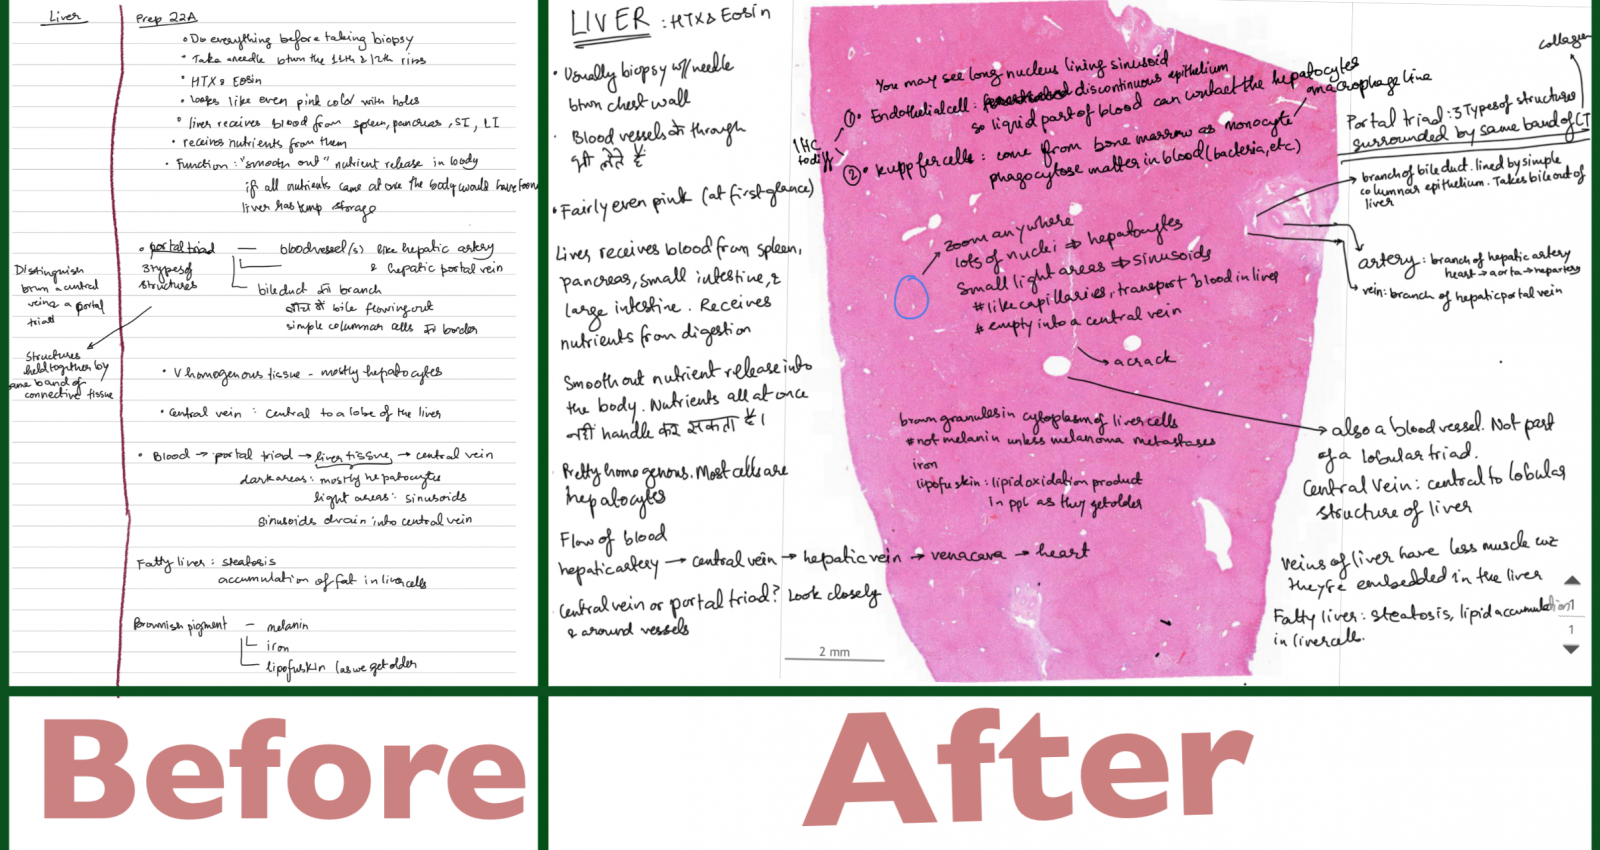 Liver
Prep 22A
• Do everything before taking biopsy
• Take a needle btwn the 11th & 12th ribs
• HTX & Eosin
• Looks like even pink color with holes
• liver receives blood from spleen, pancreas, SI, LI
• receives nutrients from them
• Function: "smooth out" nutrient release in body
if all nutrients came at one the body would have
liver has temp storage
• portal triad — blood vessel(s) like hepatic artery
& hepatic portal vein
3 types of
structures
bile duct का branch
bile flowing out
simple columnar cells का border
Distinguish
btwn a central
vein & a portal
triad
Structures
held together by
same band of
connective tissue
• V homogenous tissue - mostly hepatocytes
• Central vein: central to a lobe of the liver
• Blood → portal triad → liver tissue → central vein
dark areas: mostly hepatocytes
light areas: sinusoids
sinusoids drain into central vein
Fatty liver: steatosis
accumulation of fat in liver cells
Brownish pigment — melanin
iron
lipofuskin (as we get older
LIVER: HTX & Eosin
• Usually biopsy w/ needle
btwn chest wall
• Blood vessels के through
भी लेते है
• Fairly even pink (at first glance)
Liver receives blood from spleen,
pancreas, small intestine, &
large intestine. Receives
nutrients from digestion
Smooth out nutrient release into
the body. Nutrients all at once
नहीं handle कर सकता है।
Pretty homogenous. Most cells are
hepatocytes
Flow of blood
hepatic artery → central vein → hepatic vein → venacava → heart
Central vein or portal triad? Look closely
& around vessels
You may see long nucleus lining sinusoid
①• Endothelial cell: discontinuous epithelium
so liquid part of blood can contact the hepatocytes
macrophage line
②• Kupffer cells: come from bone marrow as monocyte
phagocytose matter in blood (bacteria, etc.)
IHC
to diff
zoom anywhere
lots of nuclei ⇒ hepatocytes
Small light areas ⇒ sinusoids
# like capillaries, transport blood in liver
# empty into a central vein
a crack
brown granules in cytoplasm of liver cells
# not melanin unless melanoma metastases
iron
lipofuskin: lipid oxidation product
in ppl as they get older
2 mm
collagen
Portal triad: 3 Types of structures
surrounded by same band of CT
branch of bile duct. lined by simple
columnar epithelium. Takes bile out of
liver
artery: branch of hepatic artery
heart → aorta → hep artery
vein: branch of hepatic portal vein
also a blood vessel. Not part
of a lobular triad.
Central Vein: central to lobular
structure of liver
Veins of liver have less muscle cuz
they're embedded in the liver
Fatty liver: steatosis, lipid accumulation
in liver cell.
1
Before
After